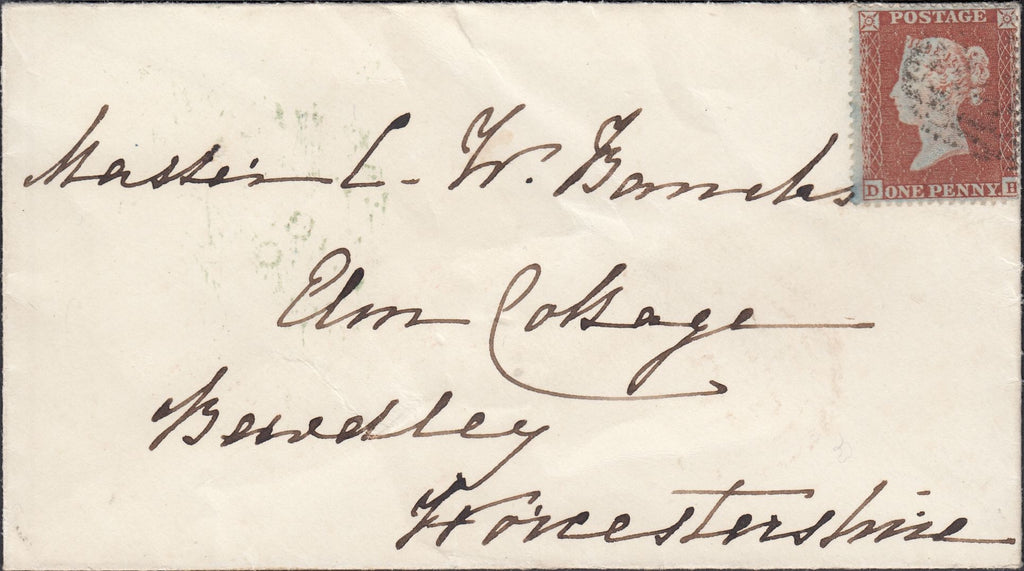 POSTAGE
D ONE PENNY H
Master L. W. Banks
Elm Cottage
Bewdley
Worcestershire